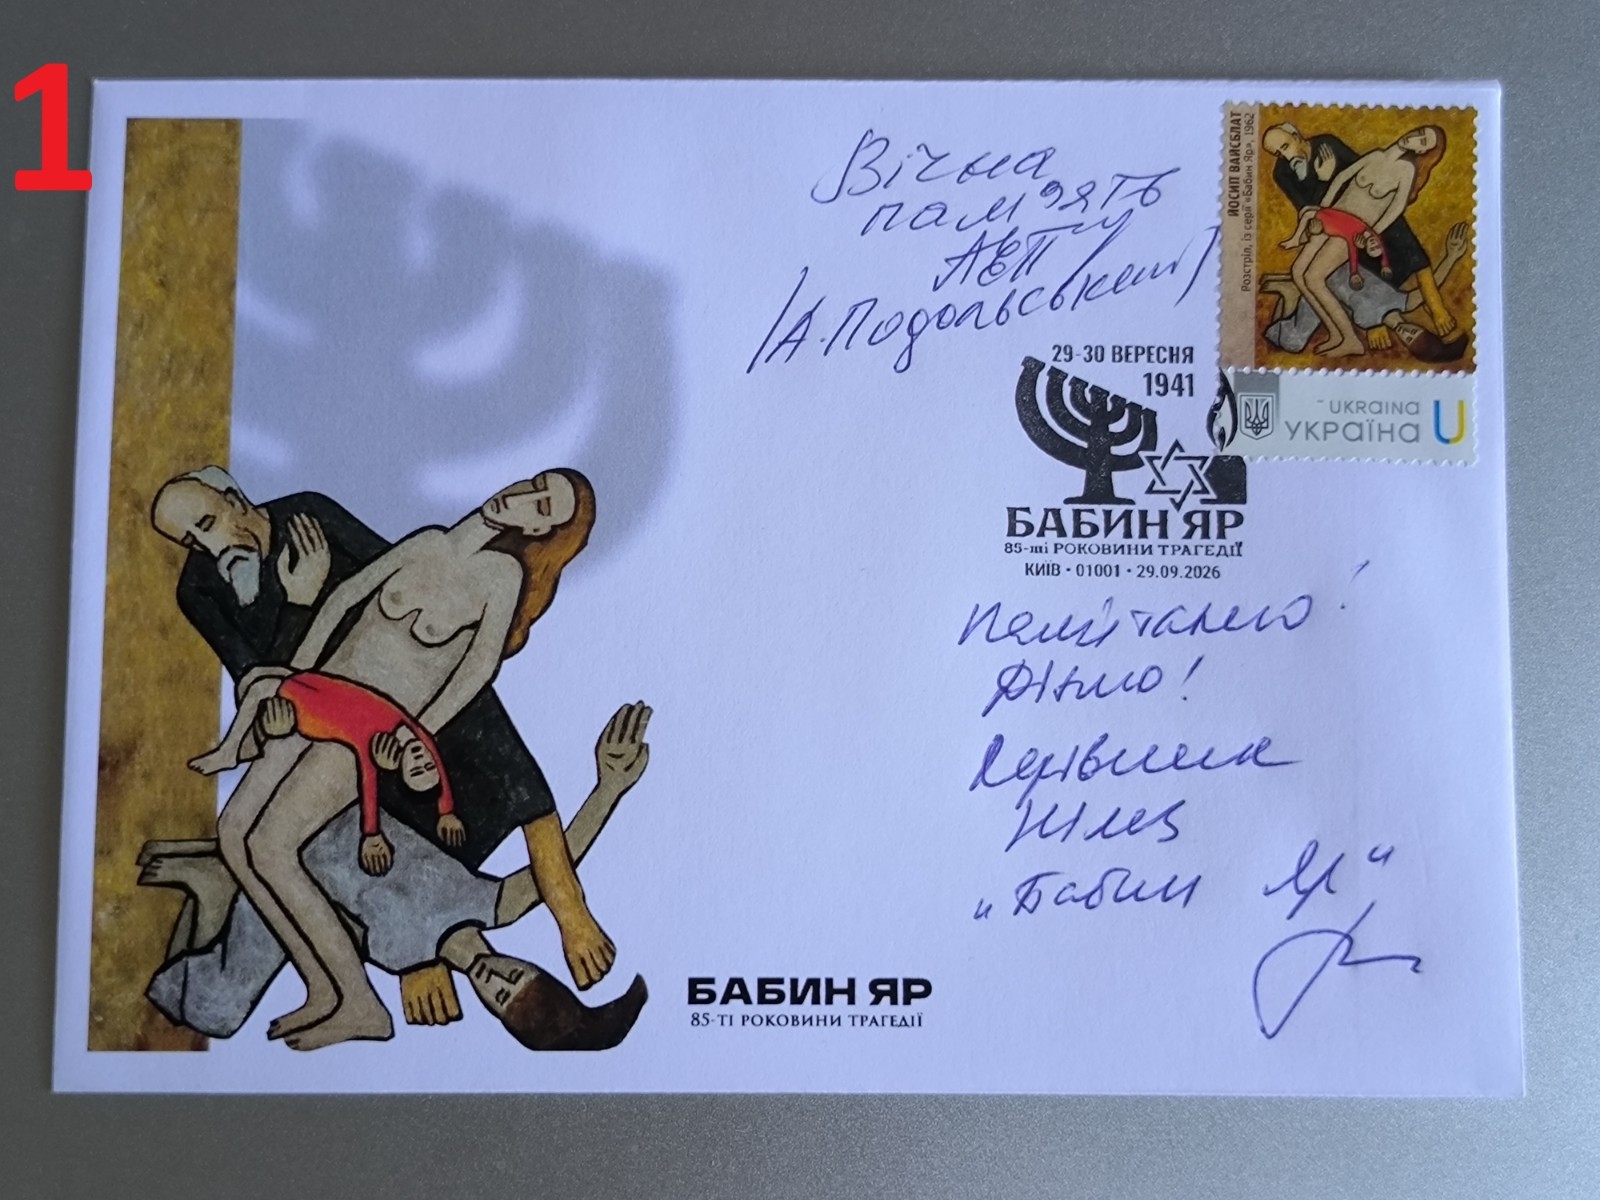 1
Вічна
пам'ять
/А.Подольський/
ЙОСИП ВАЙСБЛАТ
Розстріл, із серії «Бабин Яр», 1962
UKRAINA
УКРАЇНА U
29-30 ВЕРЕСНЯ
1941
БАБИН ЯР
85-ті РОКОВИНИ ТРАГЕДІЇ
КИЇВ • 01001 • 29.09.2026
Пам'ятаємо!
Діємо!
Керівник
"Бабин Яр"
БАБИН ЯР
85-ТІ РОКОВИНИ ТРАГЕДІЇ